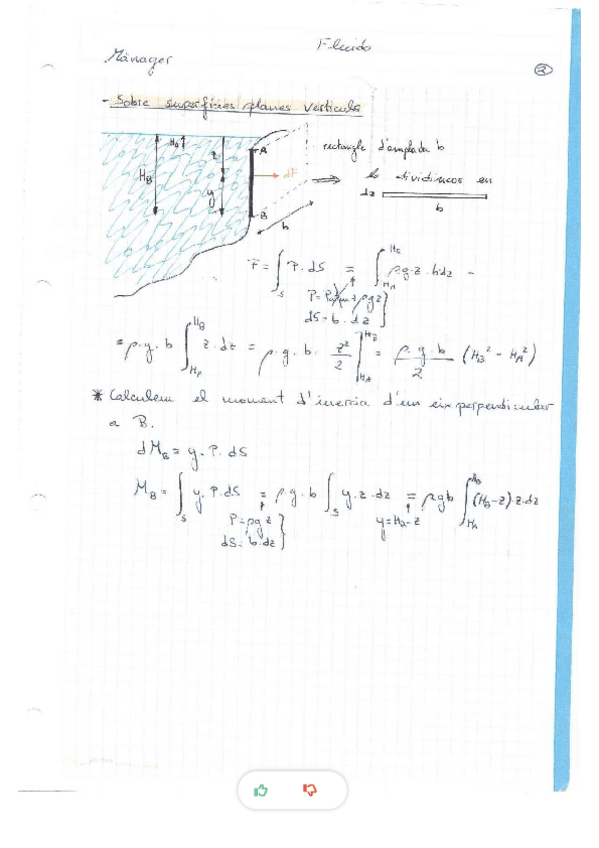 Fluids
Mànager
2
- Sobre superfícies planes verticals
H_A
z
A
rectangle d'amplada b
H_B
dF
⇒ lo dividimos en
dz
y
B
b
b
F = ∫_S P·dS = ∫_{H_A}^{H_B} ρ·g·z·b·dz =
P = P_atm + ρgz
dS = b·dz
= ρ·g·b ∫_{H_A}^{H_B} z·dz = ρ·g·b· z²/2 |_{H_A}^{H_B} = ρ·g·b/2 (H_B² - H_A²)
* Calculem el moment d'inercia d'un eix perpendicular
a B.
dM_B = y·P·dS
M_B = ∫_S y·P·dS = ρ·g·b ∫_S y·z·dz = ρgb ∫_{H_A}^{H_B} (H_B-z)·z·dz
P = ρgz
y = H_B - z
dS = b·dz